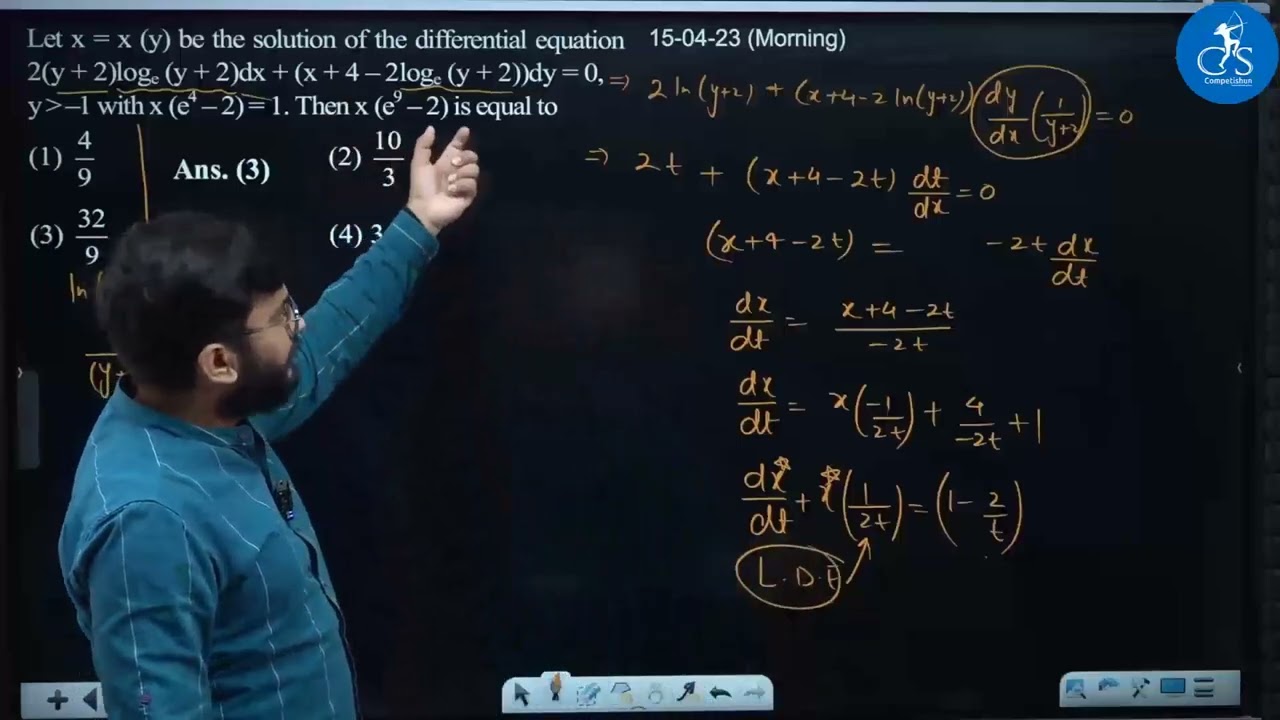 Let x = x (y) be the solution of the differential equation 15-04-23 (Morning)
2(y + 2)logₑ (y + 2)dx + (x + 4 – 2logₑ (y + 2))dy = 0,
y > –1 with x (e⁴ – 2) = 1. Then x (e⁹ – 2) is equal to
(1) 4/9
Ans. (3)
(2) 10/3
(3) 32/9
(4) 3
ln
(y+
⇒ 2 ln(y+2) + (x+4-2 ln(y+2)) dy/dx (1/y+2) = 0
⇒ 2t + (x+4-2t) dt/dx = 0
(x+4-2t) = -2t dx/dt
dx/dt = x+4-2t/-2t
dx/dt = x(-1/2t) + 4/-2t + 1
dx/dt + x(1/2t) = (1 - 2/t)
L.D.E
CS
Competishun